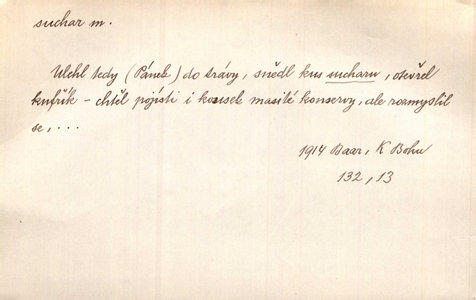 suchar m.
Ulehl tedy (Pánek) do trávy, snědl kus sucharu, otevřel
kufřík – chtěl pojísti i kousek masité konservy, ale rozmyslil
se, . . .
1914 Baar, K Bohu
132, 13